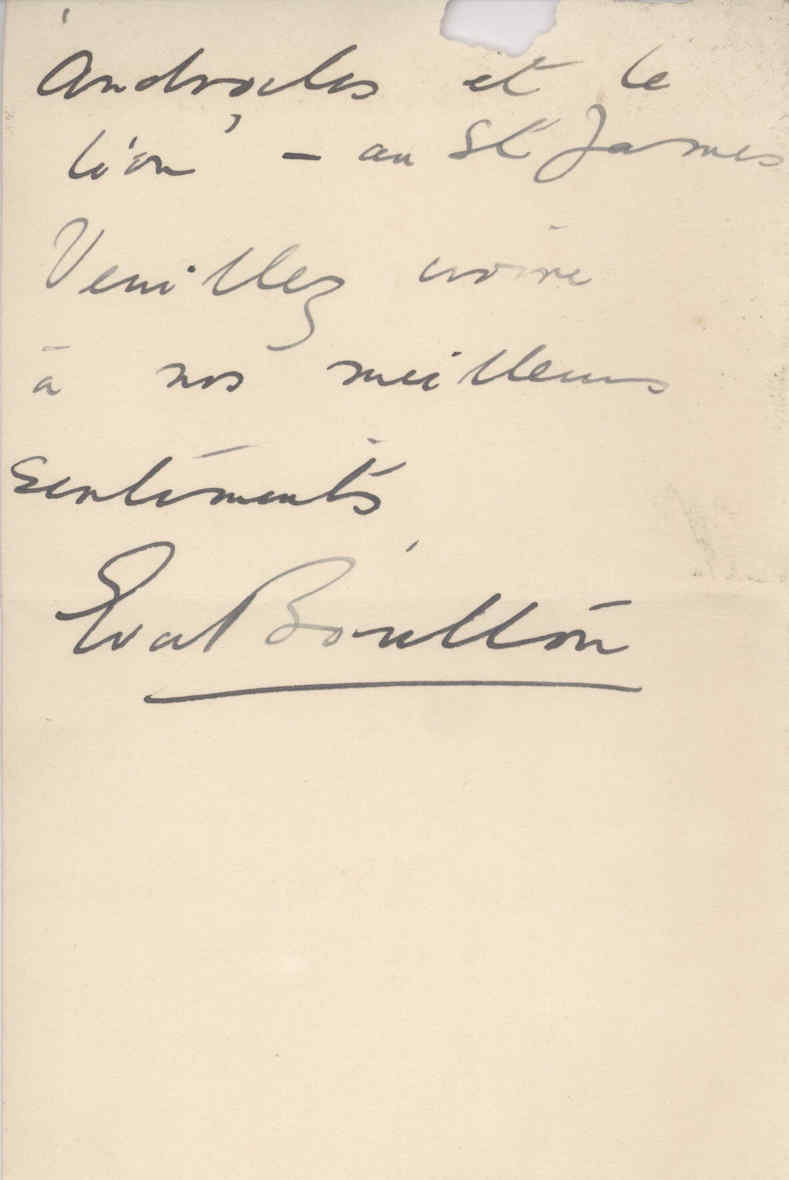 'Androcles et le
lion' – au St James
Veuillez croire
à nos meilleurs
sentiments
Eva Boulton